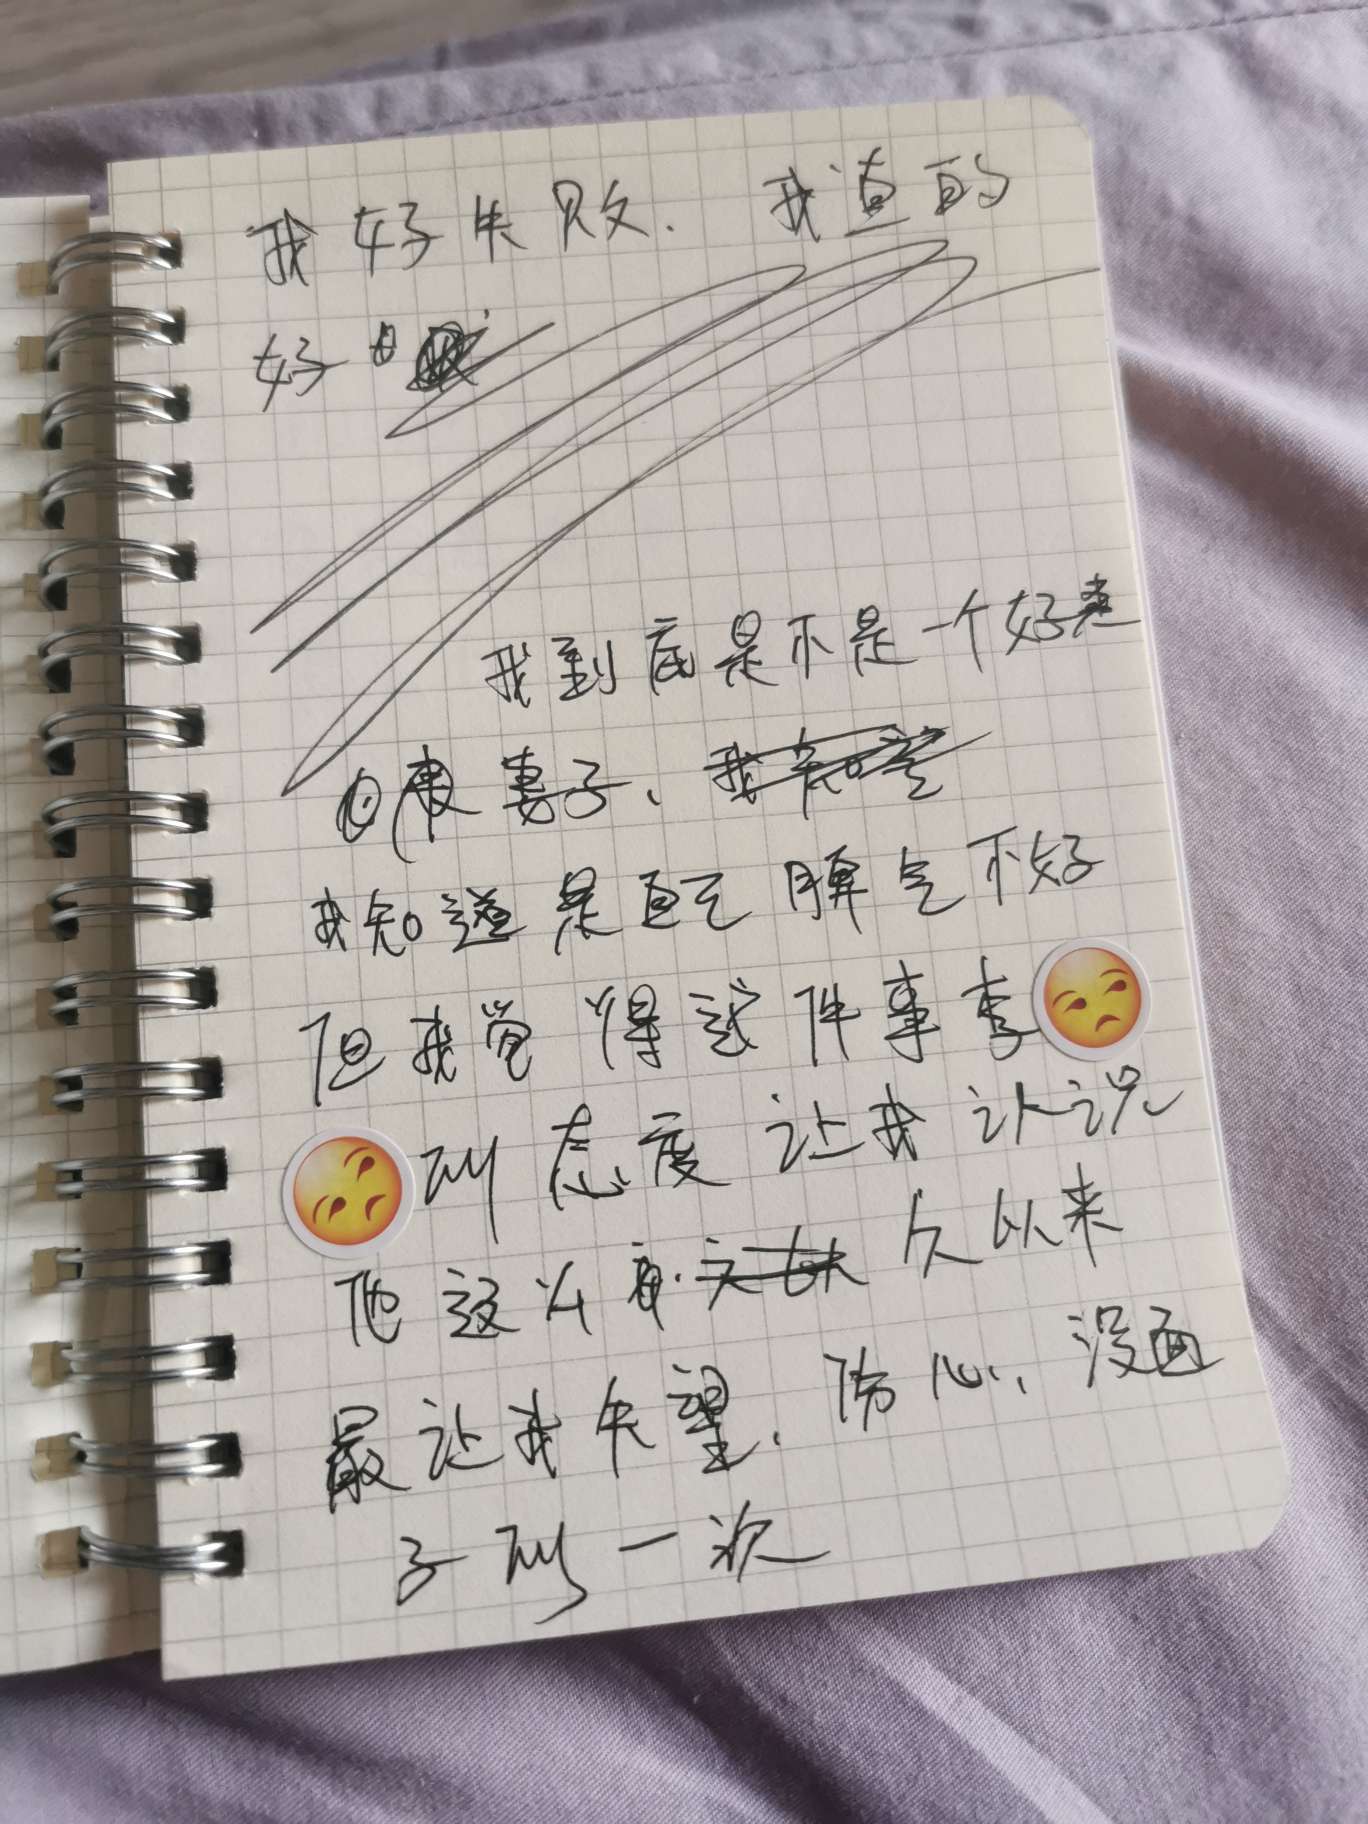 我好失败. 我真的
好
我到底是不是一个好妻
康妻子、我知道
我知道是自己脾气不好
但我觉得这件事李
叫态度让我认识
他这么久以来
最让我失望、伤心、没面
子的一次